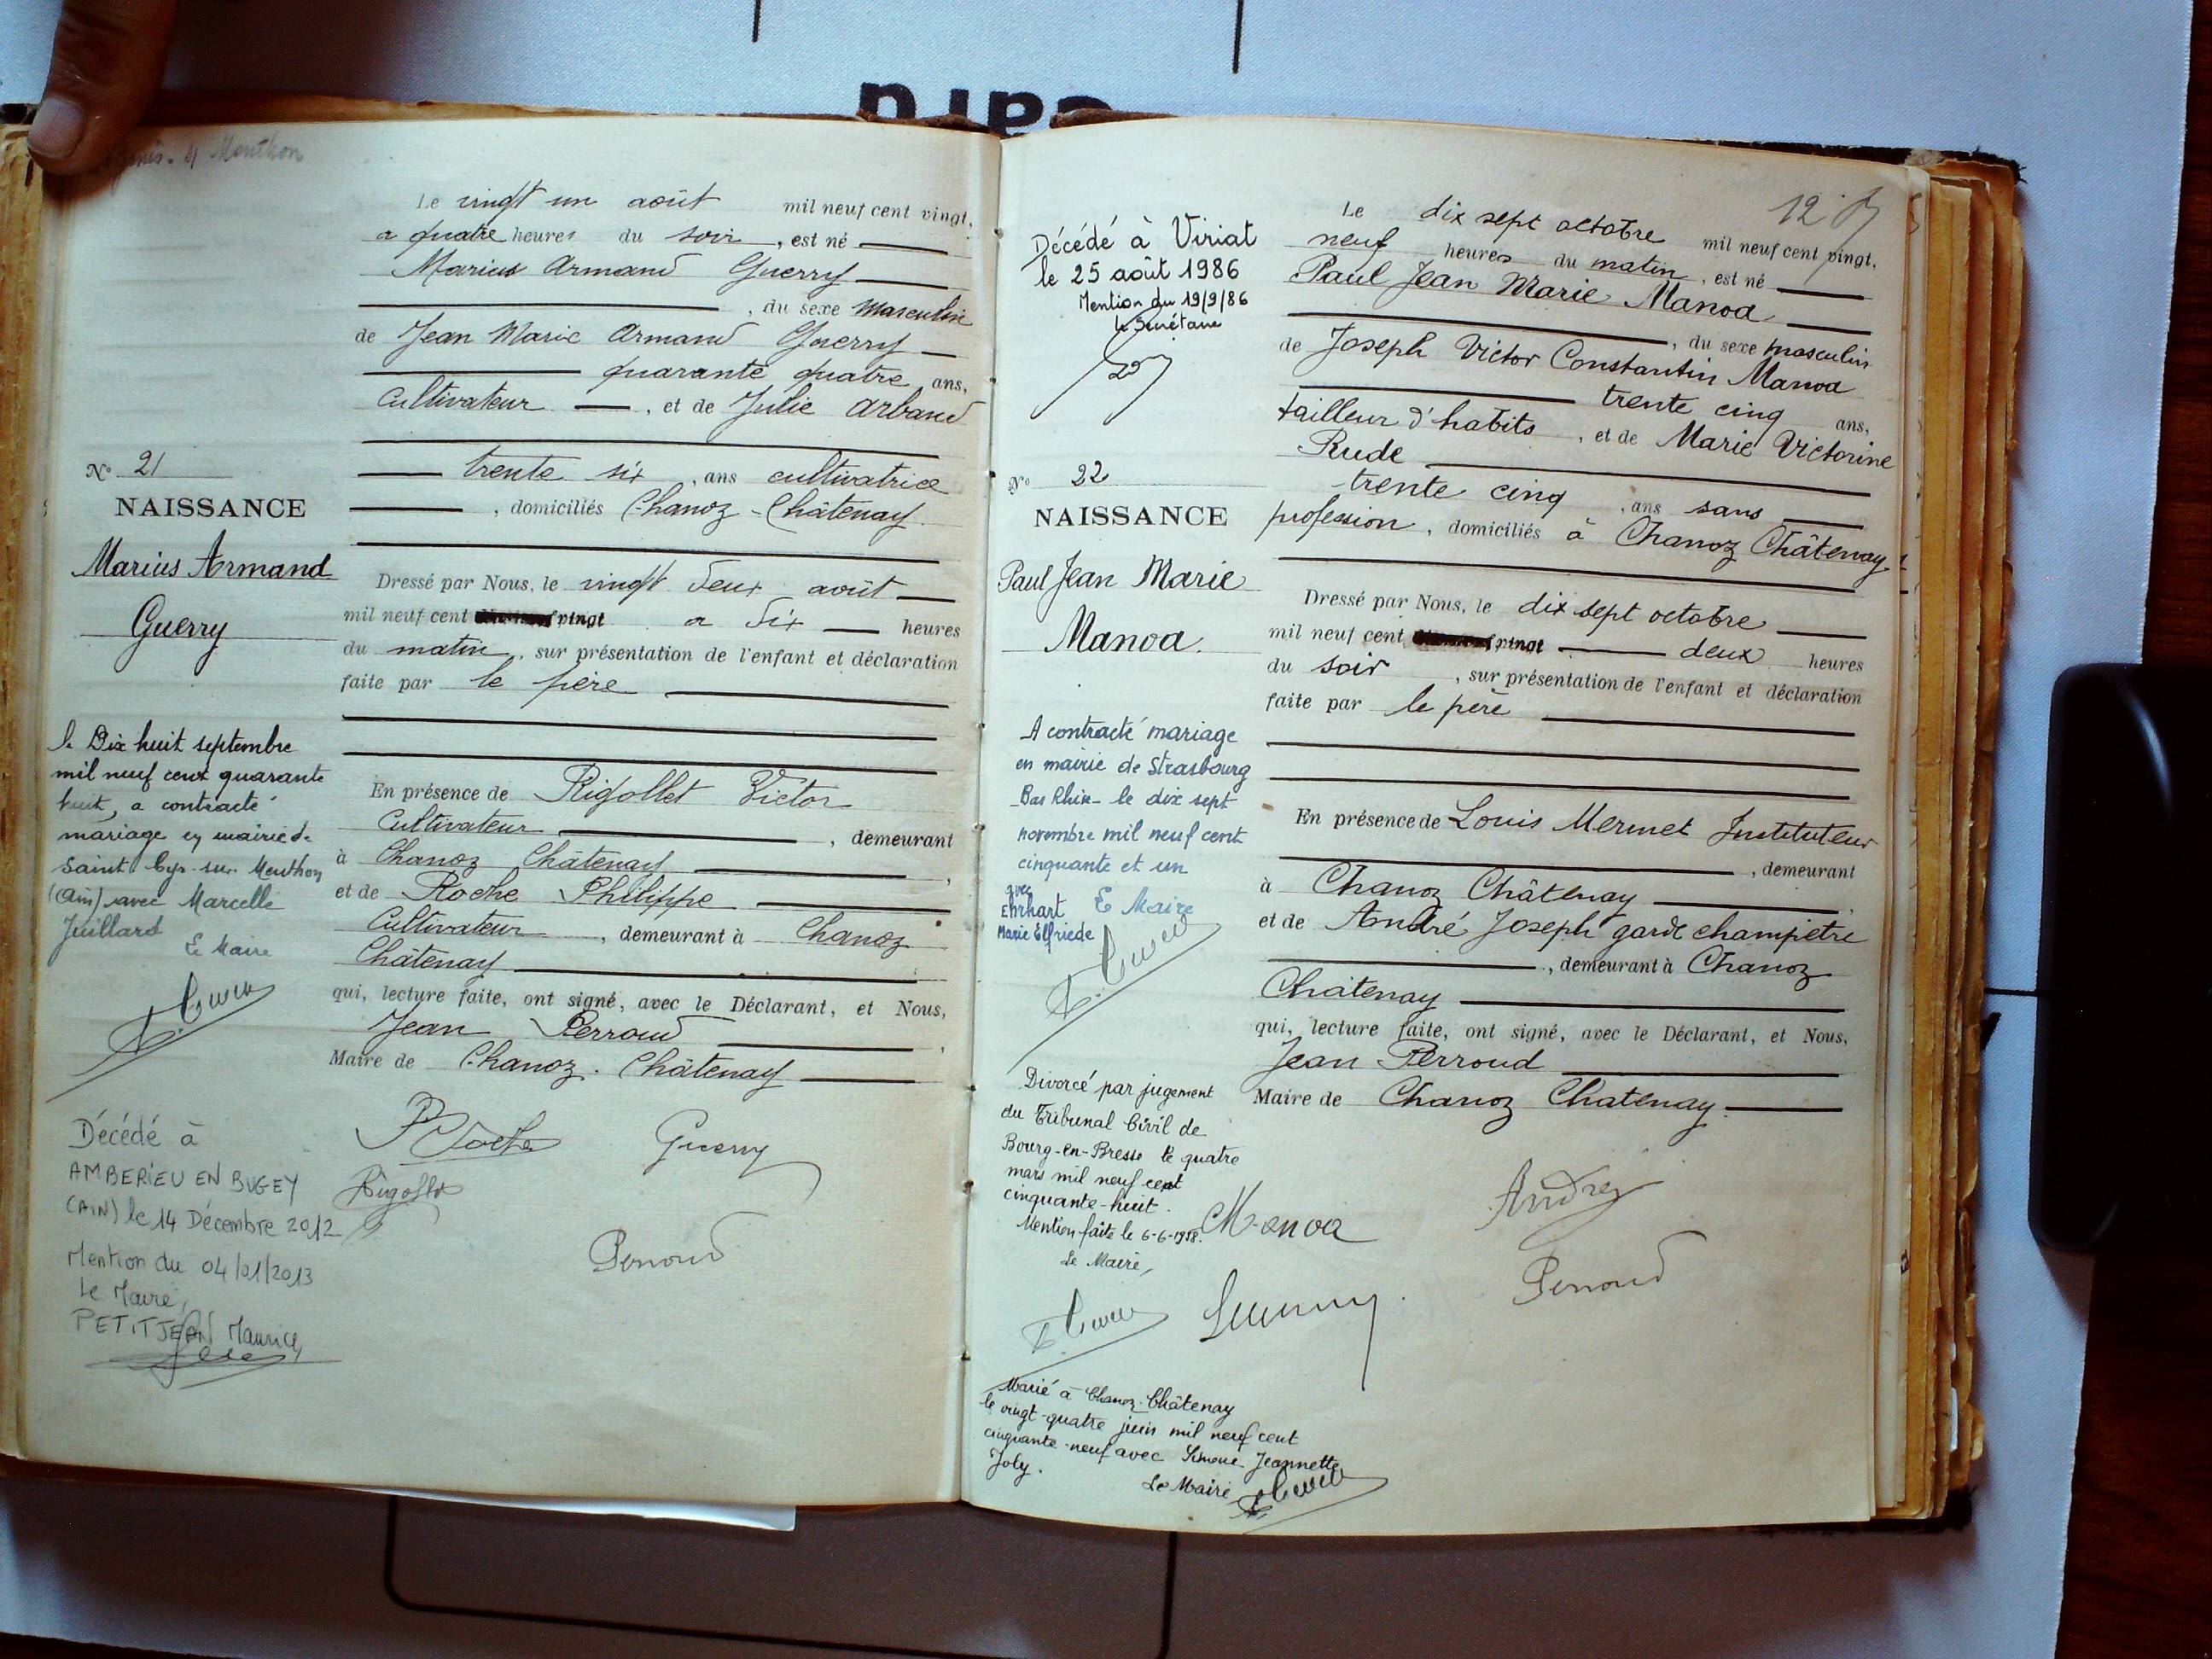 Menthon
Le vingt un août mil neuf cent vingt,
a quatre heures du soir, est né
Marius Armand Guerry
, du sexe masculin
de Jean Marie Armand Guerry
quarante quatre ans,
Cultivateur, et de Julie Arband
trente six, ans cultivatrice
, domiciliés Chanoz-Châtenay.
N° 21
NAISSANCE
Marius Armand
Guerry
Dressé par Nous, le vingt deux août
mil neuf cent vingt a dix heures
du matin, sur présentation de l'enfant et déclaration
faite par le père
En présence de Rigollet Victor
Cultivateur, demeurant
à Chanoz Châtenay,
et de Roche Philippe
Cultivateur, demeurant à Chanoz
Châtenay
qui, lecture faite, ont signé, avec le Déclarant, et Nous,
Jean Perroud,
Maire de Chanoz-Châtenay
P Roche
Guerry
Rigollet
Perroud
le Dix huit septembre
mil neuf cent quarante
huit, a contracté
mariage en mairie de
Saint Cyr sur Menthon
(Ain) avec Marcelle
Juillard
Le Maire
Décédé à
AMBERIEU EN BUGEY
(AIN) le 14 Décembre 2012
Mention du 04/01/2013
Le Maire,
PETITJEAN Maurice
12
Le dix sept octobre mil neuf cent vingt,
neuf heures du matin, est né
Paul Jean Marie Manoa
, du sexe masculin
de Joseph Victor Constantin Manoa
trente cinq ans,
tailleur d'habits, et de Marie Victorine
Rude
trente cinq, ans sans
profession, domiciliés à Chanoz Châtenay
Décédé à Viriat
le 25 août 1986
Mention du 19/9/86
le Secrétaire
N° 22
NAISSANCE
Paul Jean Marie
Manoa.
Dressé par Nous, le dix sept octobre
mil neuf cent vingt deux heures
du soir, sur présentation de l'enfant et déclaration
faite par le père
En présence de Louis Mermet Instituteur
, demeurant
à Chanoz Châtenay,
et de André Joseph garde champêtre
, demeurant à Chanoz
Châtenay
qui, lecture faite, ont signé, avec le Déclarant, et Nous,
Jean Perroud
Maire de Chanoz Chatenay.
Manoa
André
Perroud
A contracté mariage
en mairie de Strasbourg
Bas Rhin - le dix sept
novembre mil neuf cent
cinquante et un
avec
Ehrhart
Marie Elfriede
Le Maire
Divorcé par jugement
du Tribunal Civil de
Bourg-en-Bresse le quatre
mars mil neuf cent
cinquante-huit.
Mention faite le 6-6-1958.
Le Maire,
Marié à Chanoz-Châtenay
le vingt-quatre juin mil neuf cent
cinquante-neuf avec Simone Jeannette
Joly.
Le Maire